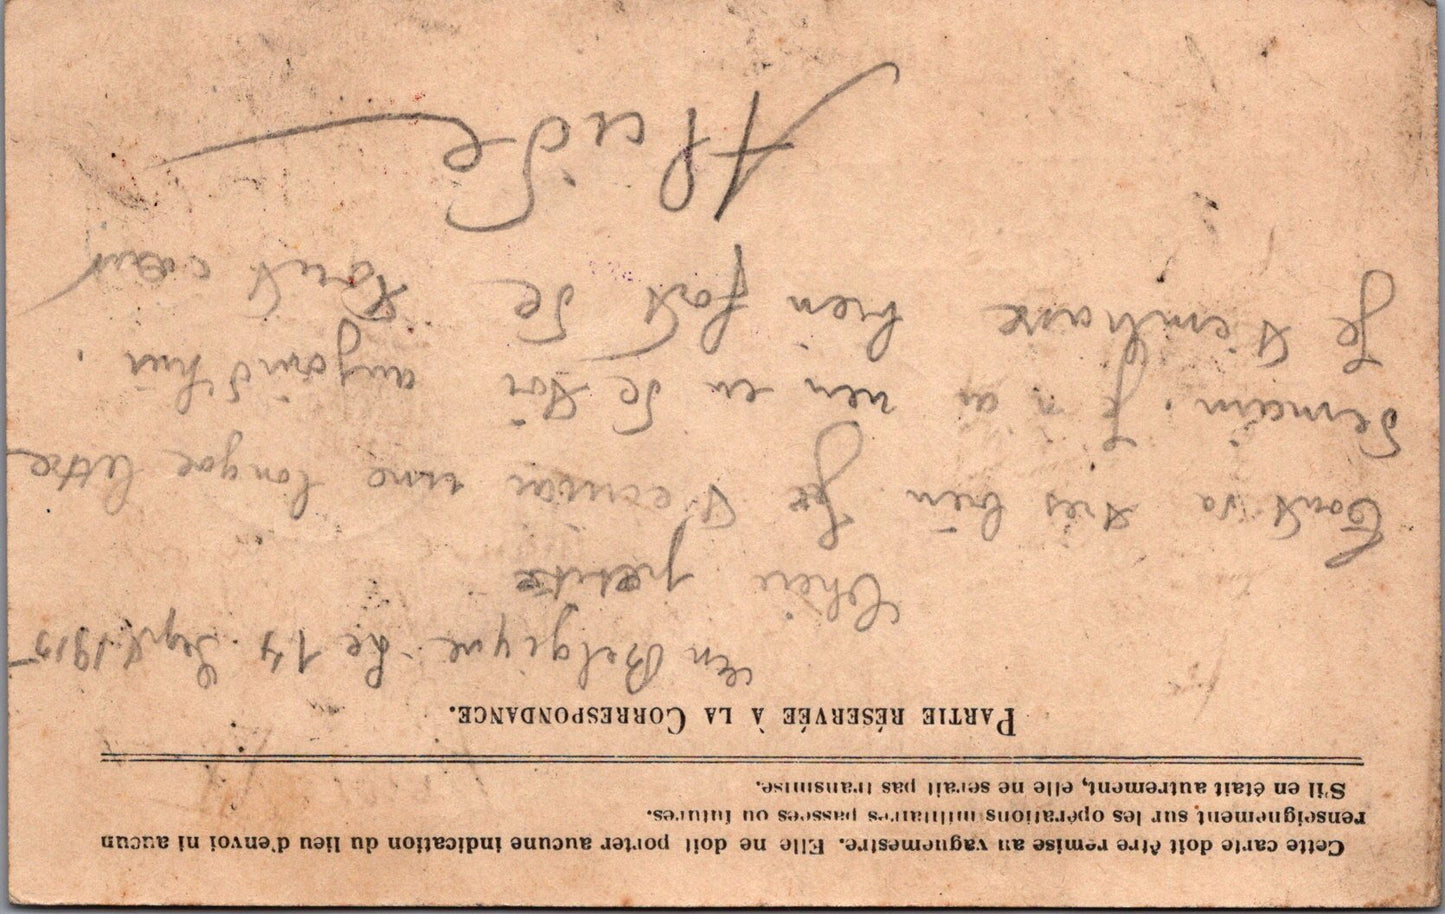 Cette carte doit être remise au vaguemestre. Elle ne doit porter aucune indication du lieu d'envoi ni aucun
renseignement sur les opérations militaires passées ou futures.
S'il en était autrement, elle ne serait pas transmise.
PARTIE RÉSERVÉE À LA CORRESPONDANCE.
en Belgique Le 14 Sept. 1915
Chère petite
Tout va très bien Je t'ecrirai une longue lettre
demain. Je n'ai rien eu de toi aujourd'hui.
Je t'embrasse bien fort de tout cœur
Alcide